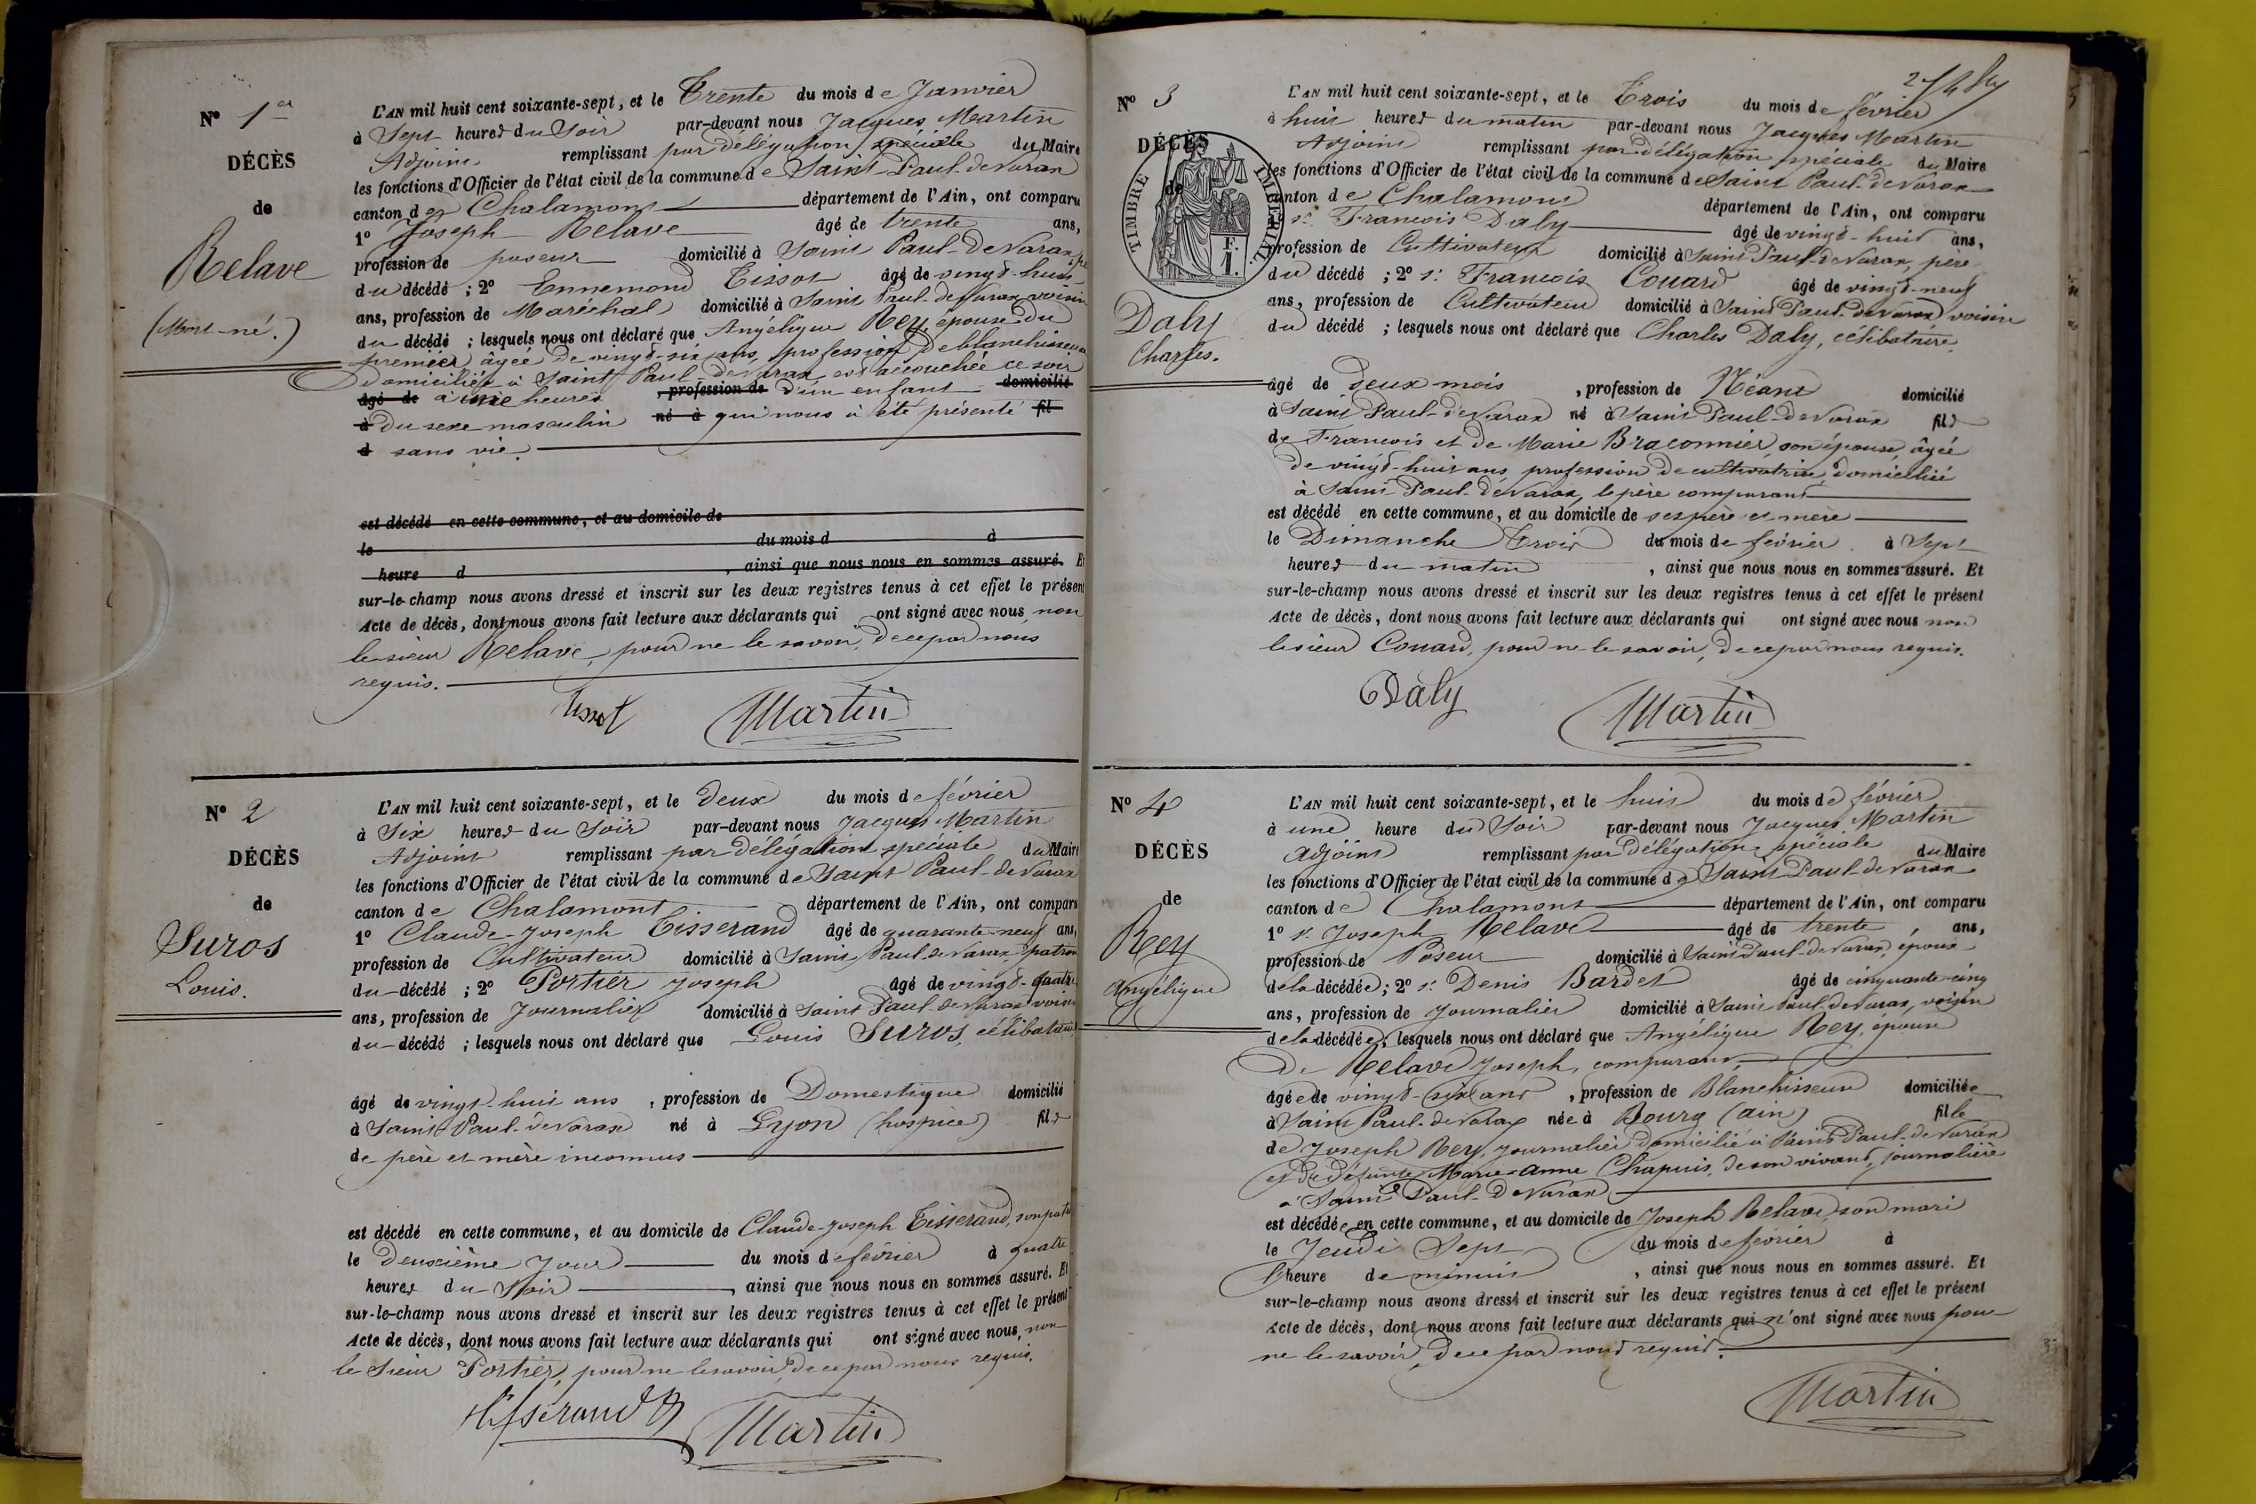 Nº 1er
DÉCÈS
de
Relave
(Mort-né.)
L'AN mil huit cent soixante-sept, et le Trente du mois de Janvier
à Sept heures du Soir par-devant nous Jacques Martin
Adjoint remplissant par délégation spéciale du Maire
les fonctions d'Officier de l'état civil de la commune de Saint-Paul-de Varax
canton de Chalamont département de l'Ain, ont comparu
1º Joseph Relave âgé de trente ans,
profession de poseur domicilié à Saint Paul-de Varax, père
du décédé ; 2º Ennemond Tissot âgé de vingt-huit
ans, profession de Maréchal domicilié à Saint Paul-de Varax voisin
du décédé ; lesquels nous ont déclaré que Angélique Rey, épouse du
premier âgée de vingt-six ans, profession de blanchisseuse
domiciliée à Saint Paul-de Varax est accouchée ce soir
âgé de à heures , profession de d'un enfant domicilié
à du sexe masculin né à qui nous a été présenté fil
d sans vie.
est décédé en cette commune, et au domicile de
le du mois d à
heure d , ainsi que nous nous en sommes assuré. Et
sur-le-champ nous avons dressé et inscrit sur les deux registres tenus à cet effet le présent
Acte de décès, dont nous avons fait lecture aux déclarants qui ont signé avec nous, non
le sieur Relave, pour ne le savoir, de ce par nous
requis.
Tissot Martin
Nº 2
DÉCÈS
de
Suros
Louis.
L'AN mil huit cent soixante-sept, et le deux du mois de février
à Six heures du Soir par-devant nous Jacques Martin
Adjoint remplissant par délégation spéciale du Maire
les fonctions d'Officier de l'état civil de la commune de Saint Paul-de Varax
canton de Chalamont département de l'Ain, ont comparu
1º Claude-Joseph Tisserand âgé de quarante-neuf ans,
profession de Cultivateur domicilié à Saint Paul-de Varax patron
du décédé ; 2º Portier Joseph âgé de vingt-quatre
ans, profession de Journalier domicilié à Saint Paul-de Varax voisin
du décédé ; lesquels nous ont déclaré que Louis Suros, célibataire
âgé de vingt-huit ans , profession de Domestique domicilié
à Saint-Paul-de Varax né à Lyon (hospice) fils
de père et mère inconnus
est décédé en cette commune, et au domicile de Claude-Joseph Tisserand, son patron
le deuxième Jour du mois de février à quatre
heures du Soir , ainsi que nous nous en sommes assuré. Et
sur-le-champ nous avons dressé et inscrit sur les deux registres tenus à cet effet le présent
Acte de décès, dont nous avons fait lecture aux déclarants qui ont signé avec nous, non
le Sieur Portier, pour ne le savoir, de ce par nous requis.
Tisserand Martin
Nº 3
DÉCÈS
de
TIMBRE IMPÉRIAL
Daly
Charles.
L'AN mil huit cent soixante-sept, et le Trois du mois de février
à huit heures du matin par-devant nous Jacques Martin
Adjoint remplissant par délégation spéciale du Maire
les fonctions d'Officier de l'état civil de la commune de Saint Paul-de Varax
canton de Chalamont département de l'Ain, ont comparu
1º sr. Francois Daly âgé de vingt-huit ans,
profession de Cultivateur domicilié à Saint Paul-de Varax, père
du décédé ; 2º sr. Francois Couard âgé de vingt-neuf
ans, profession de Cultivateur domicilié à Saint Paul-de Varax voisin
du décédé ; lesquels nous ont déclaré que Charles Daly, célibataire,
âgé de deux mois , profession de Néant domicilié
à Saint Paul-de Varax né à Saint Paul-de Varax fils
de Francois et de Marie Braconnier, son épouse, âgée
de vingt-huit ans, profession de cultivatrice, domiciliée
à Saint-Paul-de Varax, le père comparant
est décédé en cette commune, et au domicile de ses père et mère
le Dimanche Trois du mois de février à Sept
heures du matin , ainsi que nous nous en sommes assuré. Et
sur-le-champ nous avons dressé et inscrit sur les deux registres tenus à cet effet le présent
Acte de décès, dont nous avons fait lecture aux déclarants qui ont signé avec nous non
le sieur Couard, pour ne le savoir, de ce par nous requis.
Daly Martin
Nº 4
DÉCÈS
de
Rey
Angélique
L'AN mil huit cent soixante-sept, et le huit du mois de février
à une heure du Soir par-devant nous Jacques Martin
adjoint remplissant par délégation spéciale du Maire
les fonctions d'Officier de l'état civil de la commune de Saint Paul-de Varax
canton de Chalamont département de l'Ain, ont comparu
1º sr. Joseph Relave âgé de trente ans,
profession de Poseur domicilié à Saint Paul-de Varax, époux
de la décédée ; 2º sr. Denis Bardet âgé de cinquante-cinq
ans, profession de Journalier domicilié à Saint Paul-de Varax, voisin
de la décédée, lesquels nous ont déclaré que Angélique Rey, épouse
de Relave Joseph, comparant,
âgée de vingt-six ans , profession de Blanchisseuse domiciliée
à Saint Paul-de Varax née à Bourg (ain) fille
de Joseph Rey, journalier domicilié à Saint Paul-de Varax
et de défunte Marie-Anne Chapuis, de son vivant, journalière
à Saint Paul-de Varax
est décédée en cette commune, et au domicile de Joseph Relave, son mari
le Jeudi Sept du mois de février à
l'heure de minuit , ainsi que nous nous en sommes assuré. Et
sur-le-champ nous avons dressé et inscrit sur les deux registres tenus à cet effet le présent
Acte de décès, dont nous avons fait lecture aux déclarants qui n'ont signé avec nous pour
ne le savoir, de ce par nous requis.
Martin